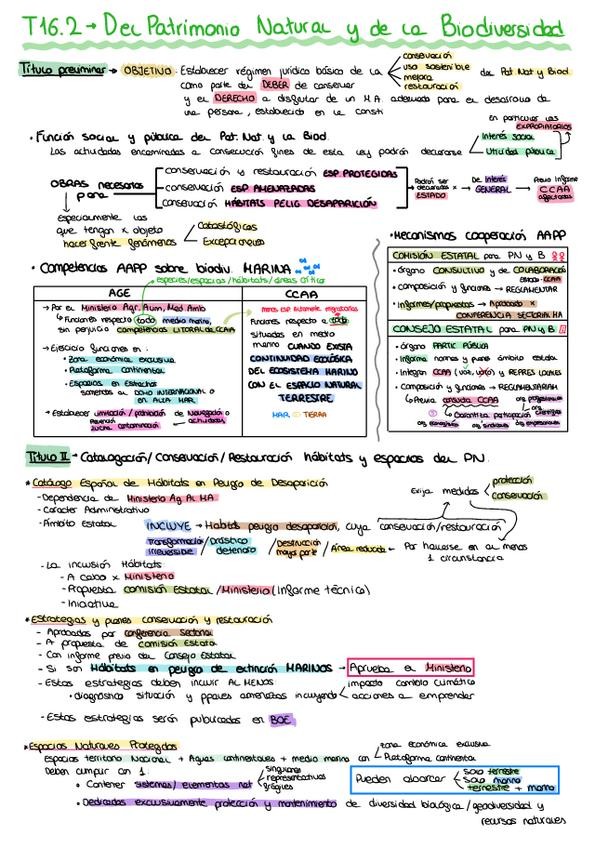 T16.2 → Del Patrimonio Natural y de la Biodiversidad
Título preliminar → OBJETIVO: Establecer régimen jurídico básico de la
conservación
uso sostenible
mejora
restauración
del Pat Nat y Biod
como parte del DEBER de conservar
y el DERECHO a disfrutar de un M.A. adecuado para el desarrollo de
una persona, establecido en la consti
• Función social y pública del Pat. Nat. y la Biod.
Las actividades encaminadas a consecución fines de esta ley podrán declararse
Interés social
Utilidad pública
en particular las
EXPROPIATORIAS
OBRAS necesarias para
conservación y restauración ESP. PROTEGIDAS
conservación ESP AMENAZADAS
conservación HÁBITATS PELIG. DESAPARICIÓN
Podrá ser declaradas x ESTADO
De Interés GENERAL
Previo informe CCAA afectadas
Especialmente las
que tengan x objeto
hacer frente fenómenos
Catastróficos
Excepcionales
• Competencias AAPP sobre biodiv. MARINA
especies/espacios/hábitats/áreas críticas
AGE
→ Por el Ministerio Agr. Alim, Med Amb
Funciones respecto todo medio marino,
sin perjuicio competencias LITORAL de CCAA
→ Ejercicio funciones en:
• Zona económica exclusiva
• Plataforma continental
• Espacios en Estrechos
sometidos al DCHO INTERNACIONAL o
en ALTA MAR
→ Establecer limitación/prohibición de Navegación o actividades
CCAA
menos ESP altamente migratorias
Funciones respecto a todo
situadas en medio
marino CUANDO EXISTA
CONTINUIDAD ECOLÓGICA
DEL ECOSISTEMA MARINO
CON EL ESPACIO NATURAL
TERRESTRE
MAR TIERRA
• Mecanismos cooperación AAPP
COMISIÓN ESTATAL para PN y B
• órgano CONSULTIVO y de COLABORACIÓN
ESTADO-CCAA
• composición y funciones → REGLAMENTAR
• Informes/propuestas → Aprobado x
CONFERENCIA SECTORIAL MA
CONSEJO ESTATAL para PN y B
• órgano PARTIC PÚBLICA
• Informa normas y planes ámbito estatal
• Integran CCAA (voz, voto) y REPRES LOCALES
• Composición y funciones → REGLAMENTARIAM
Previa consulta CCAA
Garantiza participación
org profesionales
org científicas
org ecologistas org sindicales org empresariales
Título II → Catalogación/Conservación/Restauración hábitats y espacios del PN.
* Catálogo Español de Hábitats en Peligro de Desaparición
- Dependencia de Ministerio Ag Al MA
- Carácter Administrativo
- Ámbito estatal
Exija medidas
protección
conservación
INCLUYE → Hábitats peligro desaparición, cuya conservación/restauración
Transformación irreversible / Drástico deterioro / Destrucción mayor parte / Área reducida ← Por hallarse en al menos
1 circunstancia
- La inclusión Hábitats:
- A cabo x Ministerio
- Propuesta comisión estatal/Ministerio (Informe técnico)
- Iniciativa
* Estrategias y planes conservación y restauración
- Aprobadas por conferencia Sectorial
- A propuesta de comisión Estatal
- Con informe previo del Consejo Estatal
- Si son Hábitats en peligro de extinción MARINOS → Aprueba el Ministerio
- Estas estrategias deben incluir AL MENOS:
• diagnóstico situación y ppales amenazas incluyendo
impacto cambio climático
acciones a emprender
- Estas estrategias serán publicadas en BOE.
* Espacios Naturales Protegidos
Espacios territorio Nacional + Aguas continentales + medio marino con
zona económica exclusiva
Plataforma continental
Deben cumplir con 1:
• Contener sistemas/elementos nat
singulares
representativos
frágiles
Pueden abarcar
solo terrestre
solo marino
terrestre + marino
• Dedicados exclusivamente protección y mantenimiento de diversidad biológica/geodiversidad y
recursos naturales